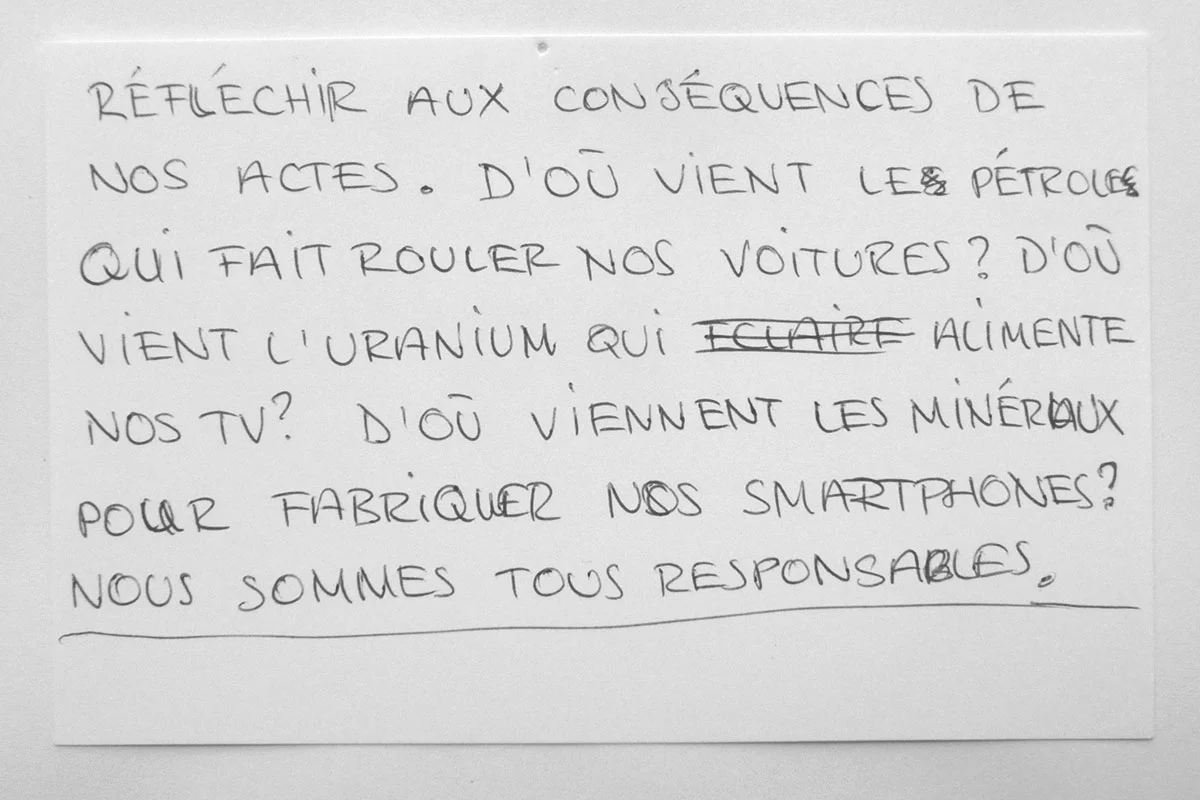 RÉFLÉCHIR AUX CONSÉQUENCES DE
NOS ACTES. D'OÙ VIENT LE PÉTROLE
QUI FAIT ROULER NOS VOITURES? D'OÙ
VIENT L'URANIUM QUI ECLAIRE ALIMENTE
NOS TV? D'OÙ VIENNENT LES MINÉRAUX
POUR FABRIQUER NOS SMARTPHONES?
NOUS SOMMES TOUS RESPONSABLES.